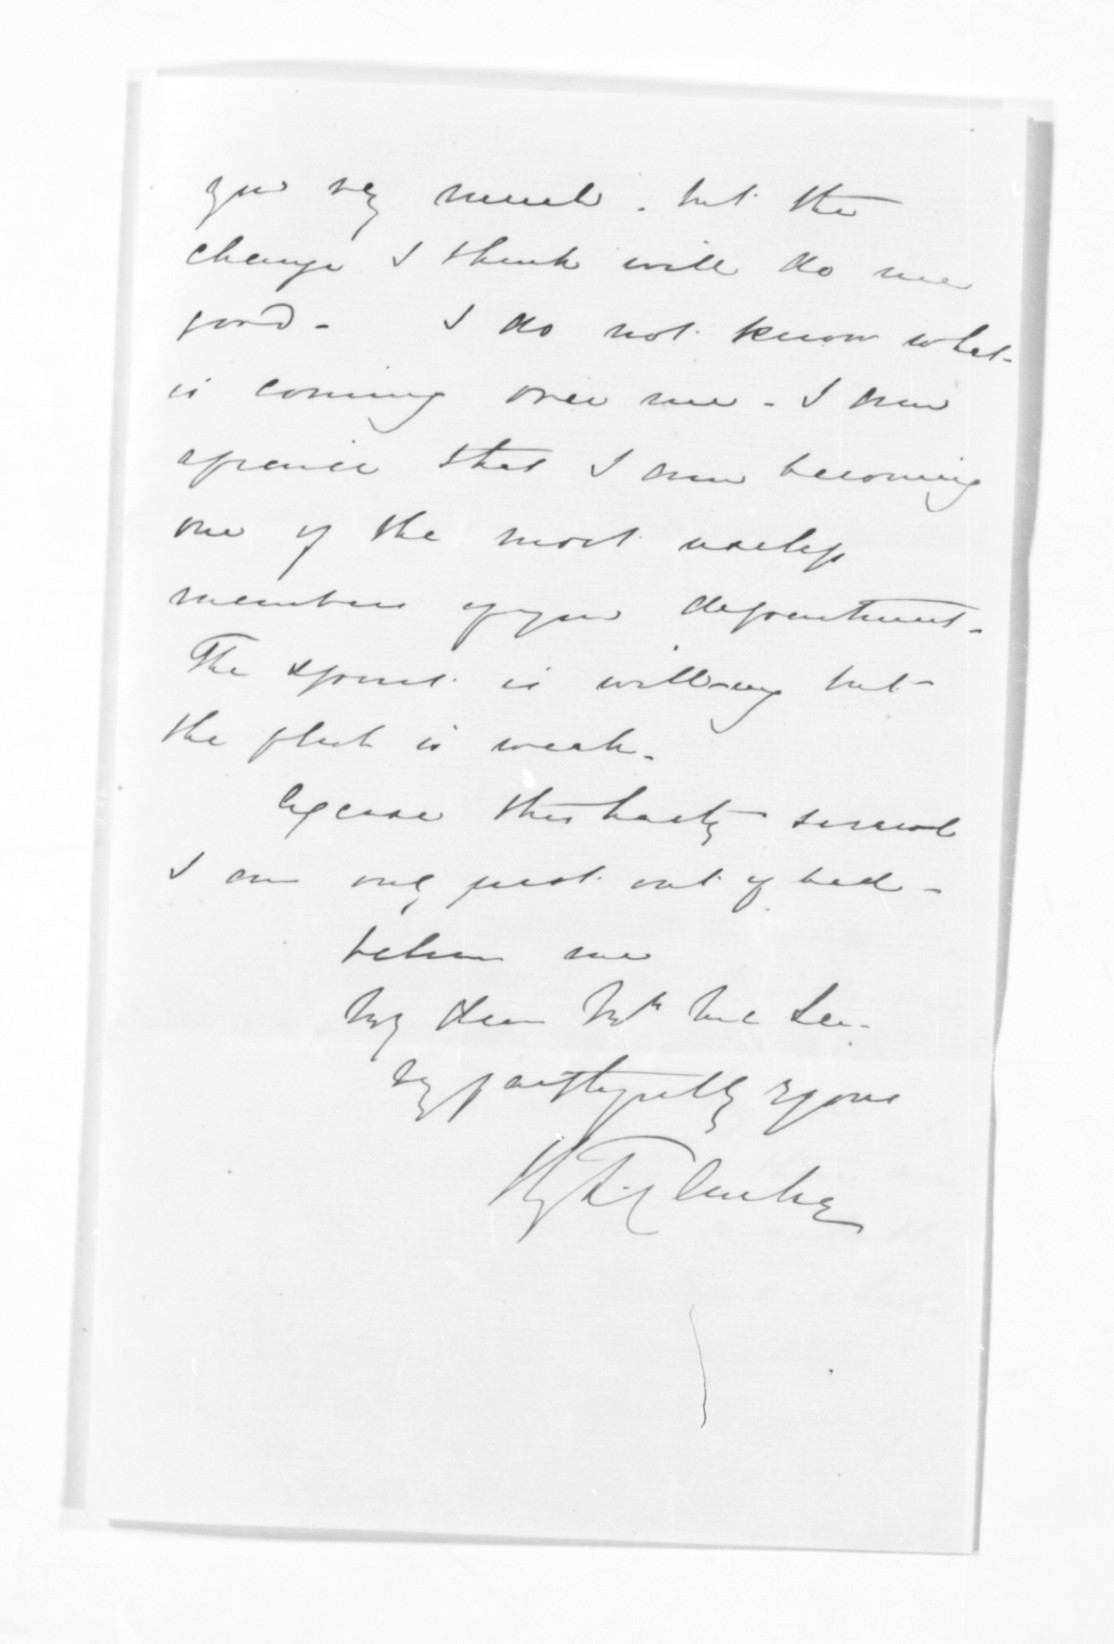 you very much. but the
change I think will do me
good - I do not know what
is coming over me - I am
afraid that I am becoming
one of the most useless
members of your department -
The spirit is willing but
the flesh is weak.
Excuse this hasty scrawl
I am only just out of bed -
believe me
My dear Mr McLean
Vy faithfully yours
Hy T. Clarke